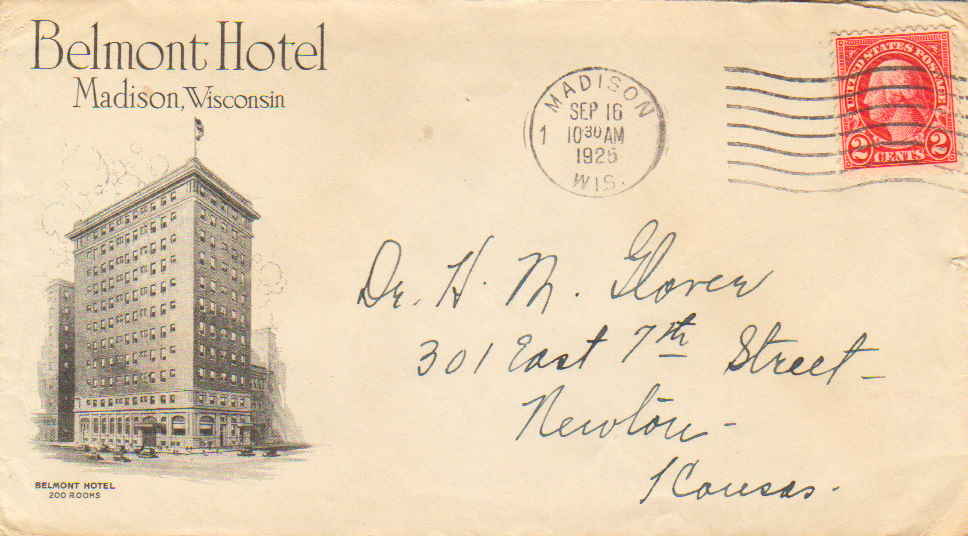 Belmont Hotel
Madison, Wisconsin
MADISON
SEP 16
1 10 30 AM
1925
WIS.
UNITED STATES POSTAGE
2 CENTS 2
Dr. H. M. Glover
301 East 7th Street -
Newton -
Kansas.
BELMONT HOTEL
200 ROOMS